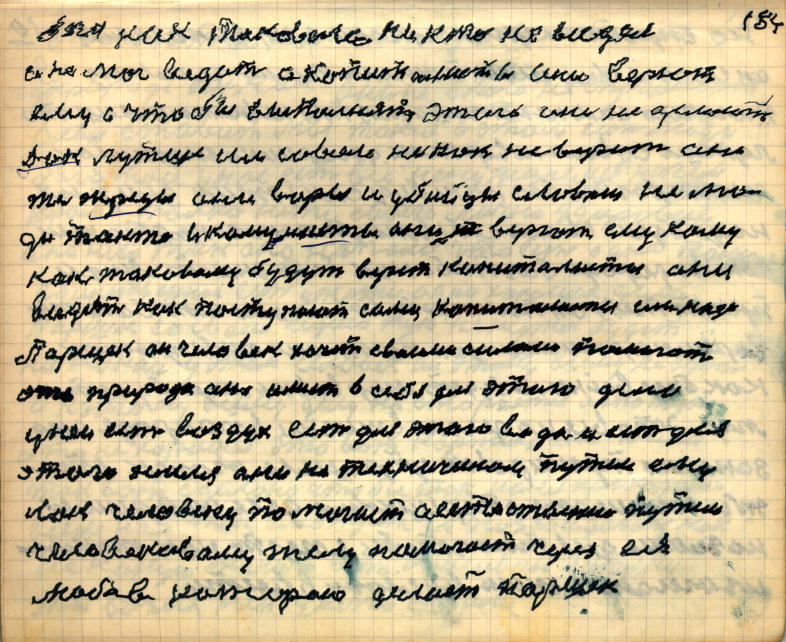 184
них таковых никто не видел
они верют
ему а чтобы выполнят этого они не делают
путик или совсем никак не верит они
же жрецы они воры и убийцы словом не лю
ди также и комунисты они не веруют ему кому
как таковому будут верит капиталисты они
видят как поступают сами капиталисты им надо
Паршек он человек хочет своими силами помогат
это природа она имеет в себя для этого дело
у ней ест воздух ест для этого вода и ест для
этого земля они не техничиском путем ему
как человеку помогает естественно путем
человековому телу помогает через его
любов которою делает Паршек